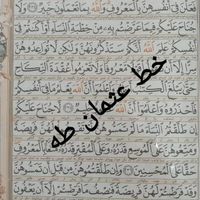 فَعَلْنَ فِىٓ أَنفُسِهِنَّ بِٱلْمَعْرُوفِ وَٱللَّهُ بِمَا تَعْمَلُونَ خَبِيرٌ ٢٣٤ وَلَا
جُنَاحَ عَلَيْكُمْ فِيمَا عَرَّضْتُم بِهِۦ مِنْ خِطْبَةِ ٱلنِّسَآءِ أَوْ أَكْنَنتُمْ فِىٓ
أَنفُسِكُمْ عَلِمَ ٱللَّهُ أَنَّكُمْ سَتَذْكُرُونَهُنَّ وَلَٰكِن لَّا تُوَاعِدُوهُنَّ
سِرًّا إِلَّآ أَن تَقُولُوا۟ قَوْلًا مَّعْرُوفًا وَلَا تَعْزِمُوا۟ عُقْدَةَ ٱلنِّكَاحِ
حَتَّىٰ يَبْلُغَ ٱلْكِتَٰبُ أَجَلَهُۥ وَٱعْلَمُوٓا۟ أَنَّ ٱللَّهَ يَعْلَمُ مَا فِىٓ أَنفُسِكُمْ
فَٱحْذَرُوهُ وَٱعْلَمُوٓا۟ أَنَّ ٱللَّهَ غَفُورٌ حَلِيمٌ ٢٣٥ لَّا جُنَاحَ عَلَيْكُمْ
إِن طَلَّقْتُمُ ٱلنِّسَآءَ مَا لَمْ تَمَسُّوهُنَّ أَوْ تَفْرِضُوا۟ لَهُنَّ فَرِيضَةً
وَمَتِّعُوهُنَّ عَلَى ٱلْمُوسِعِ قَدَرُهُۥ وَعَلَى ٱلْمُقْتِرِ قَدَرُهُۥ مَتَٰعًۢا بِٱلْمَعْرُوفِ
حَقًّا عَلَى ٱلْمُحْسِنِينَ ٢٣٦ وَإِن طَلَّقْتُمُوهُنَّ مِن قَبْلِ أَن تَمَسُّوهُنَّ
وَقَدْ فَرَضْتُمْ لَهُنَّ فَرِيضَةً فَنِصْفُ مَا فَرَضْتُمْ إِلَّآ أَن يَعْفُونَ
خط عثمان طه